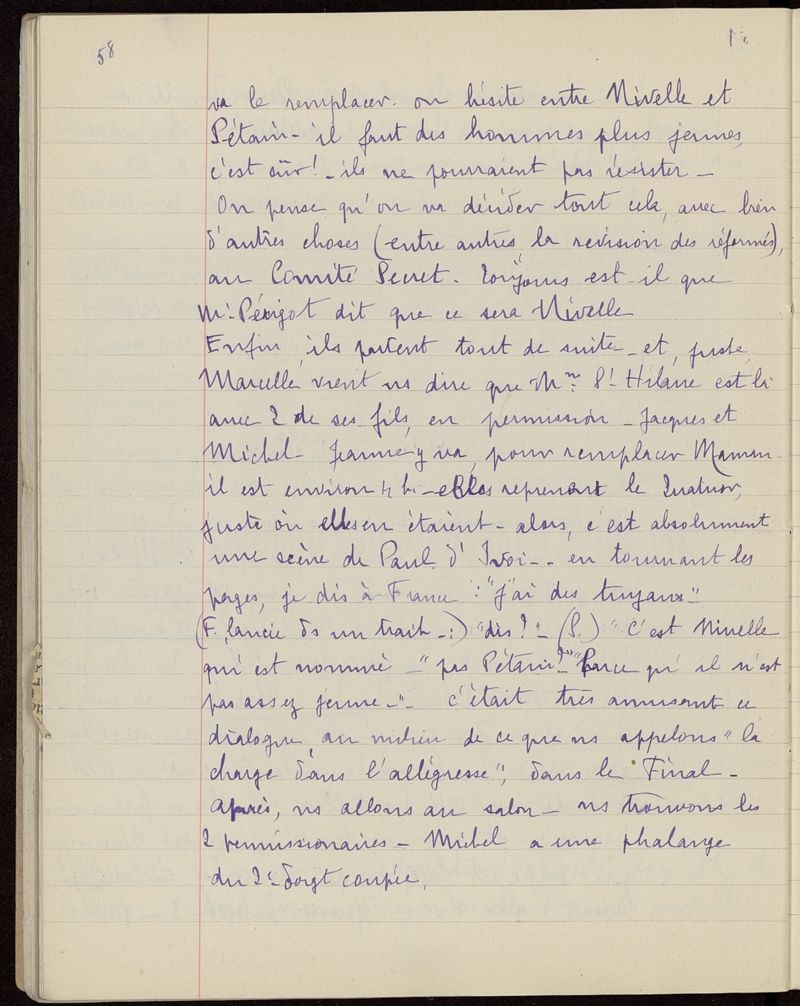 58
va le remplacer. on hésite entre Nivelle et
Pétain - il faut des hommes plus jeunes,
c'est sûr! - ils ne pourraient pas résister -
On pense qu'on va décider tout cela, avec bien
d'autres choses (entre autres la revision des réformés),
au Comité Secret. Toujours est-il que
Mr. Périgot dit que ce sera Nivelle
Enfin, ils partent tout de suite - et, juste,
Marcelle vient ns dire que Mme St Hilaire est là
avec 2 de ses fils, en permission - Jacques et
Michel - Jeanne y va, pour remplacer Maman -
il est environ 4 h. - elles reprennent le Quatuor,
juste où elles en étaient - alors, c'est absolument
une scène de Paul d'Ivoi - - en tournant les
pages, je dis à France : "J'ai des tuyaux"
(F. lancée ds un trait - :) "dis?" - (S.) "C'est Nivelle
qui est nommé - "pas Pétain?" "Parce qu'il n'est
pas assez jeune -" - c'était très amusant ce
dialogue, au milieu de ce que ns appelons "la
charge dans l'allégresse", dans le Final -
Après, ns allons au salon - ns trouvons les
2 permissionaires - Michel a une phalange
du 2e doigt coupée,